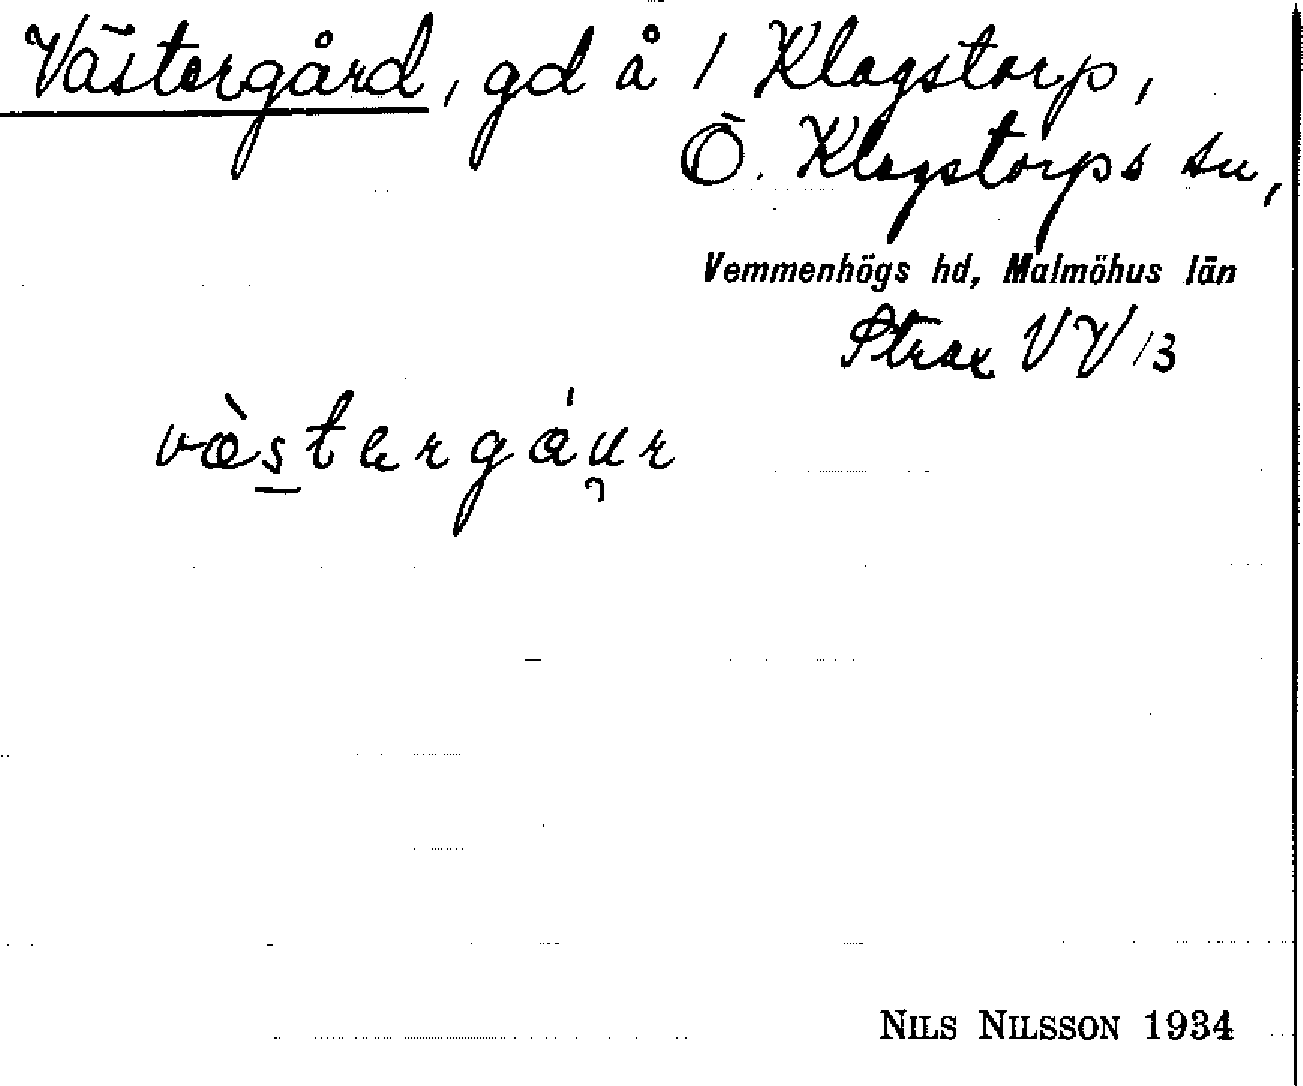 Västergård, gd å 1 Klagstorp,
Ö. Klagstorps sn,
Vemmenhögs hd, Malmöhus län
Strax VV 13
væ̀stergáu̯r
NILS NILSSON 1934